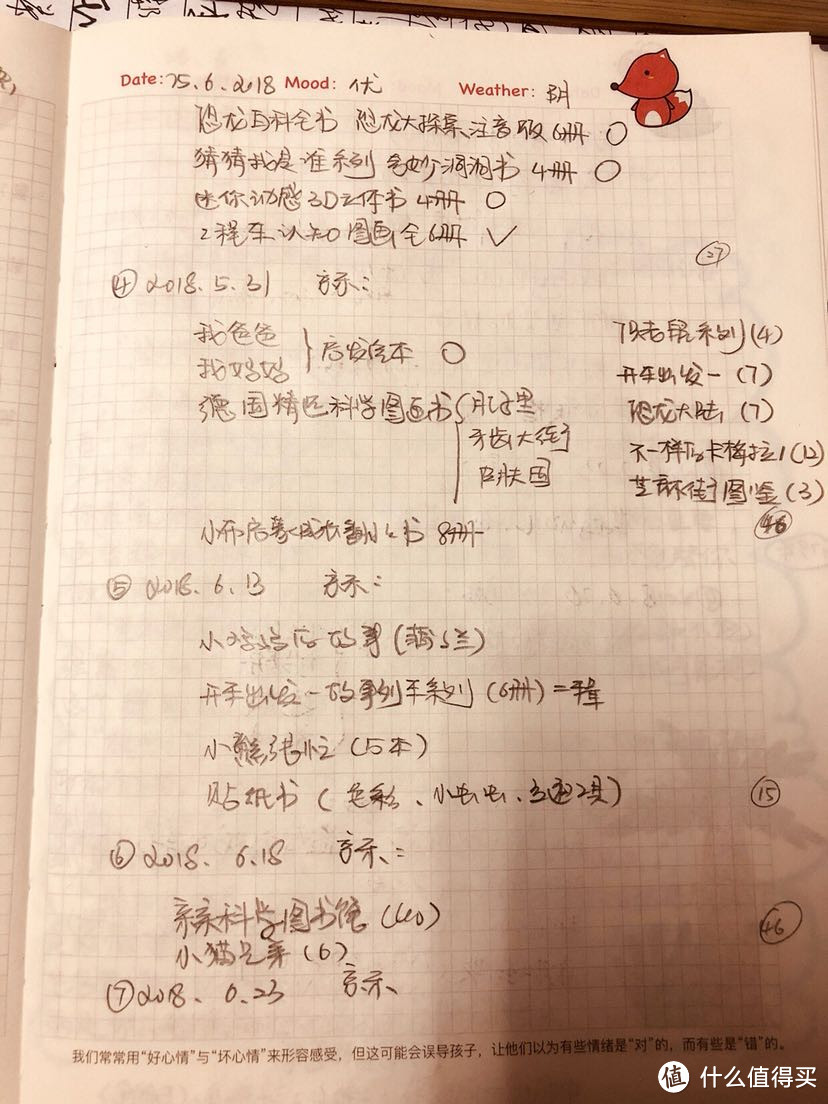 Date: 25.6.2018 Mood: 优 Weather: 阴
恐龙百科全书 恐龙大探索 注音版 6册 ○
猜猜我是谁系列 奇妙洞洞书 4册 ○
迷你动感3D立体书 4册 ○
工程车认知图画 全6册 ✓
㉗
④ 2018.5.31 京东:
我爸爸
我妈妈
启发绘本 ○
德国精选科学图画书
肚子里
牙齿大街
皮肤国
小布启蒙成长翻翻书 8册
系列(4)
开车出发一(7)
恐龙大陆(7)
不一样的卡梅拉1(12)
芝麻街图鉴(3)
⑤ 2018.6.13 京东:
小 的故事
开车出发一故事列车系列(6册)=辑
小熊很忙(15本)
贴纸书(色彩、小虫虫、交通工具)
⑮
⑥ 2018.6.18 京东:
亲亲科学图书馆(40)
小猫兄弟(6)
㊻
⑦ 2018.6.23 京东
我们常常用“好心情”与“坏心情”来形容感受，但这可能会误导孩子，让他们以为有些情绪是“对”的，而有些是“错”的。
值 什么值得买